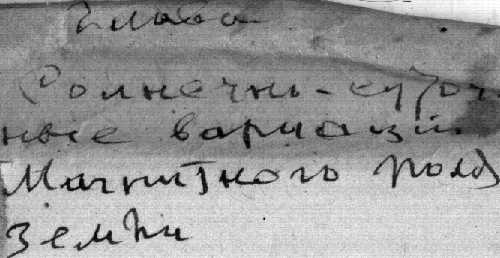 Глава
Солнечно-суточ-
ные вариации
Магнитного поля
Земли